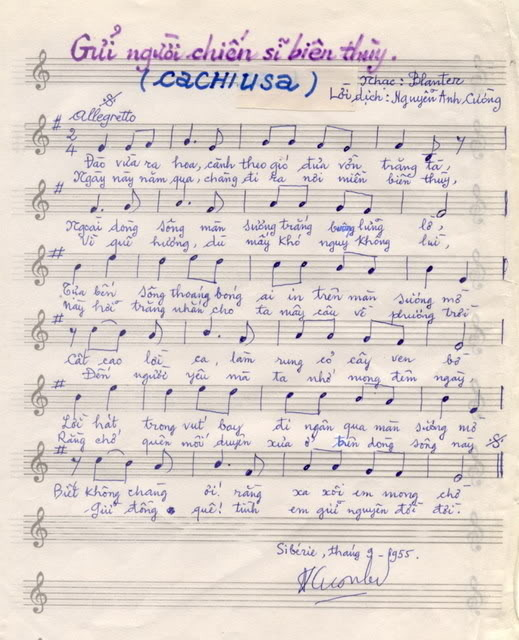 Gửi người chiến sĩ biên thùy.
(CACHIUSA)
Nhạc: Blanter
Lời dịch: Nguyễn Anh Cường
Allegretto
2
4
Đào vừa ra hoa, cành theo gió đưa vờn trăng tà,
Ngày này năm qua, chàng đi ra nơi miền biên thùy,
Ngoài dòng sông màn sương trắng buông lững lờ,
Vì quê hương, dù mấy khó nguy không lui,
Tựa bến sông thoáng bóng ai in trên màn sương mờ
Này hỡi trăng nhắn cho ta mấy câu về phương trời
Cất cao lời ca, làm rung cỏ cây ven bờ
Đến người yêu mà ta nhớ mong đêm ngày
Lời hát, trong vút bay đi ngân qua màn sương mờ
Rằng chớ quên mối duyên xưa ở trên dòng sông này
Biết không chàng ơi! rằng xa xôi em mong chờ
Giữ đồng quê! tình em giữ nguyên đời đời.
Sibérie, tháng 9-1955.